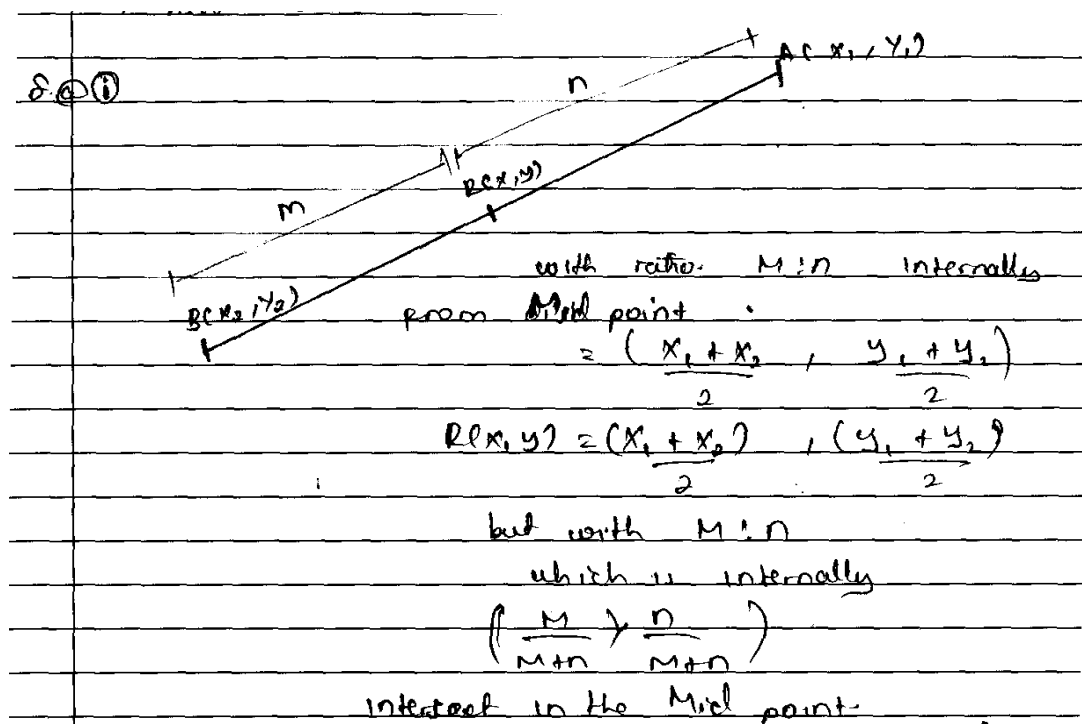 A(x₁, y₁)
8.(a)(i)
n
R(x,y)
m
with ratio. M:n internally
B(x₂, y₂)
from Mid point.
= (x₁ + x₂ / 2 , y₁ + y₂ / 2)
R(x,y) = (x₁ + x₂ / 2) , (y₁ + y₂ / 2)
but with M:n
which is internally
(M / M+n , n / M+n)
in the Mid point.